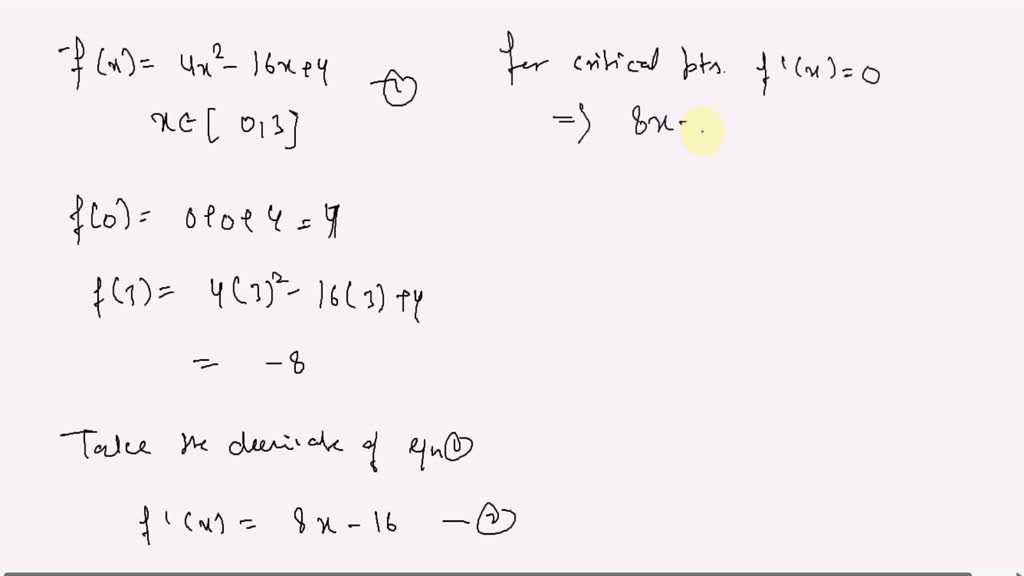 f(x) = 4x² - 16x + 4 ①
x ∈ [ 0, 3]
f(0) = 0 + 0 + 4 = 4
f(3) = 4(3)² - 16(3) + 4
= -8
Take the derivate of eqn ①
f'(x) = 8x - 16 — ②
for critical pts. f'(x) = 0
=> 8x -